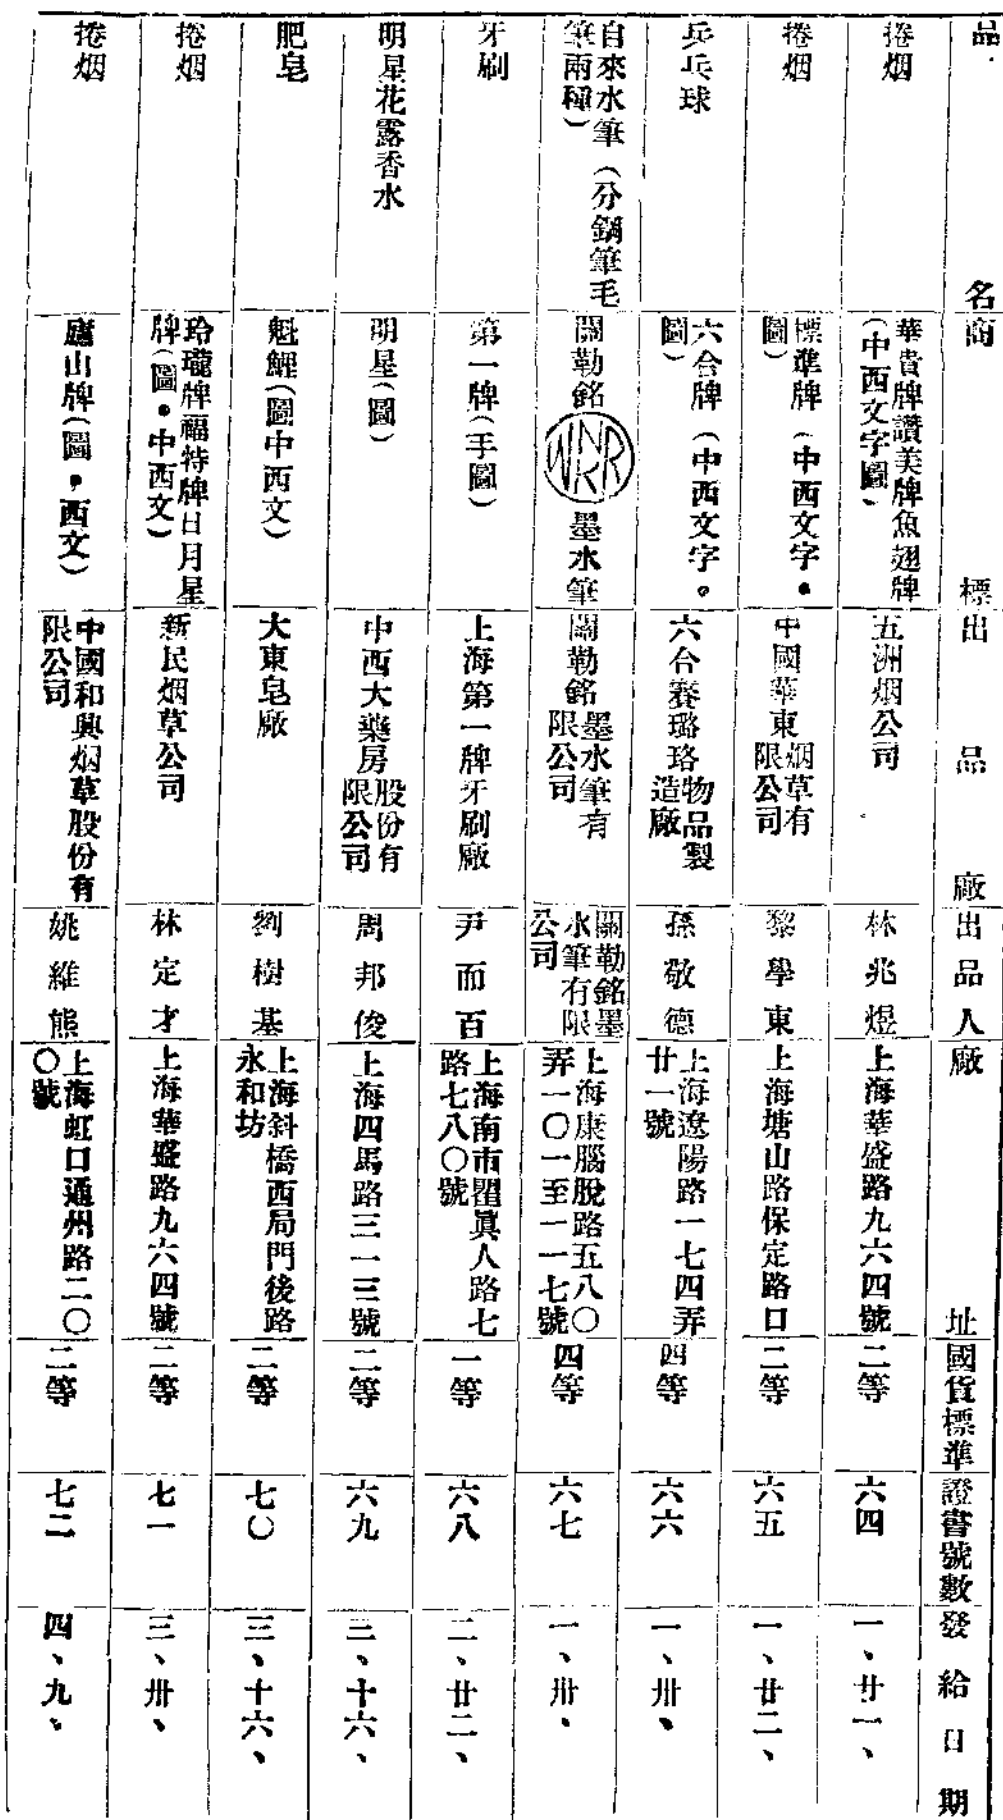 品名 商標 出品廠 出品人 廠址 國貨標準 證書號數 發給日期
捲烟 華貴牌讚美牌魚翅牌(中西文字圖) 五洲烟公司 林兆煜 上海華盛路九六四號 二等 六四 一、廿一、
捲烟 標準牌(中西文字•圖) 中國華東烟草有限公司 黎學東 上海塘山路保定路口 二等 六五 一、廿二、
乒乓球 六合牌(中西文字。圖) 六合賽璐珞物品製造廠 孫敬德 上海遼陽路一七四弄廿一號 四等 六六 一、卅、
自來水筆(分鋼筆毛筆兩種) 關勒銘 WRNR 墨水筆 關勒銘墨水筆有限公司 關勒銘墨水筆有限公司 上海康腦脫路五八〇弄一〇一至一一七號 四等 六七 一、卅、
牙刷 第一牌(手圖) 上海第一牌牙刷廠 尹而百 上海南市瞿眞人路七路七八〇號 一等 六八 二、廿二、
明星花露香水 明星(圖) 中西大藥房股份有限公司 周邦俊 上海四馬路三一三號 二等 六九 三、十六、
肥皂 魁鯉(圖中西文) 大東皂廠 劉樹基 上海斜橋西局門後路永和坊 二等 七〇 三、十六、
捲烟 玲瓏牌福特牌日月星牌(圖•中西文) 新民烟草公司 林定才 上海華盛路九六四號 二等 七一 三、卅、
捲烟 廬山牌(圖•西文) 中國和興烟草股份有限公司 姚維熊 上海虹口通州路二〇〇號 二等 七二 四、九、